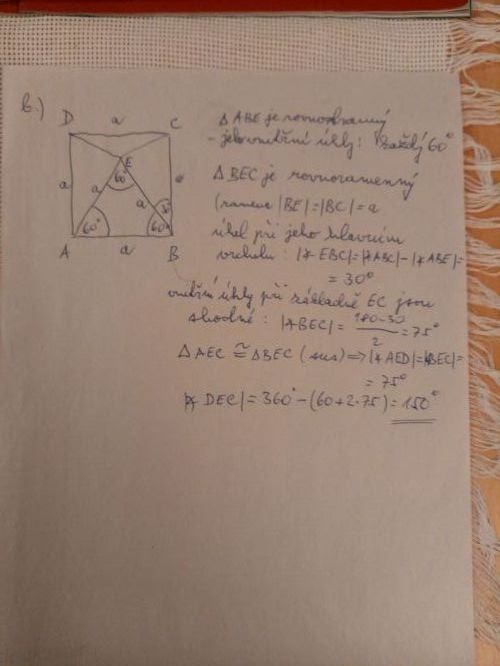 b.)
D a C
△ ABE je rovnostranný
- jeho vnitřní úhly: každý 60°
E
60°
a a a a
30°
60° 60°
A a B
△ BEC je rovnoramenný
(ramene |BE|=|BC|=a
úhel při jeho hlavním
vrcholu: |∢ EBC|=|∢ABC|-|∢ABE|=
= 30°
vnitřní úhly při základně EC jsou
shodné: |∢BEC| = 180-30/2 = 75°
△ AEC ≅ △BEC (sus) ⇒ |∢AED|=|∢BEC|=
= 75°
|∢ DEC| = 360° - (60+2·75) = 150°